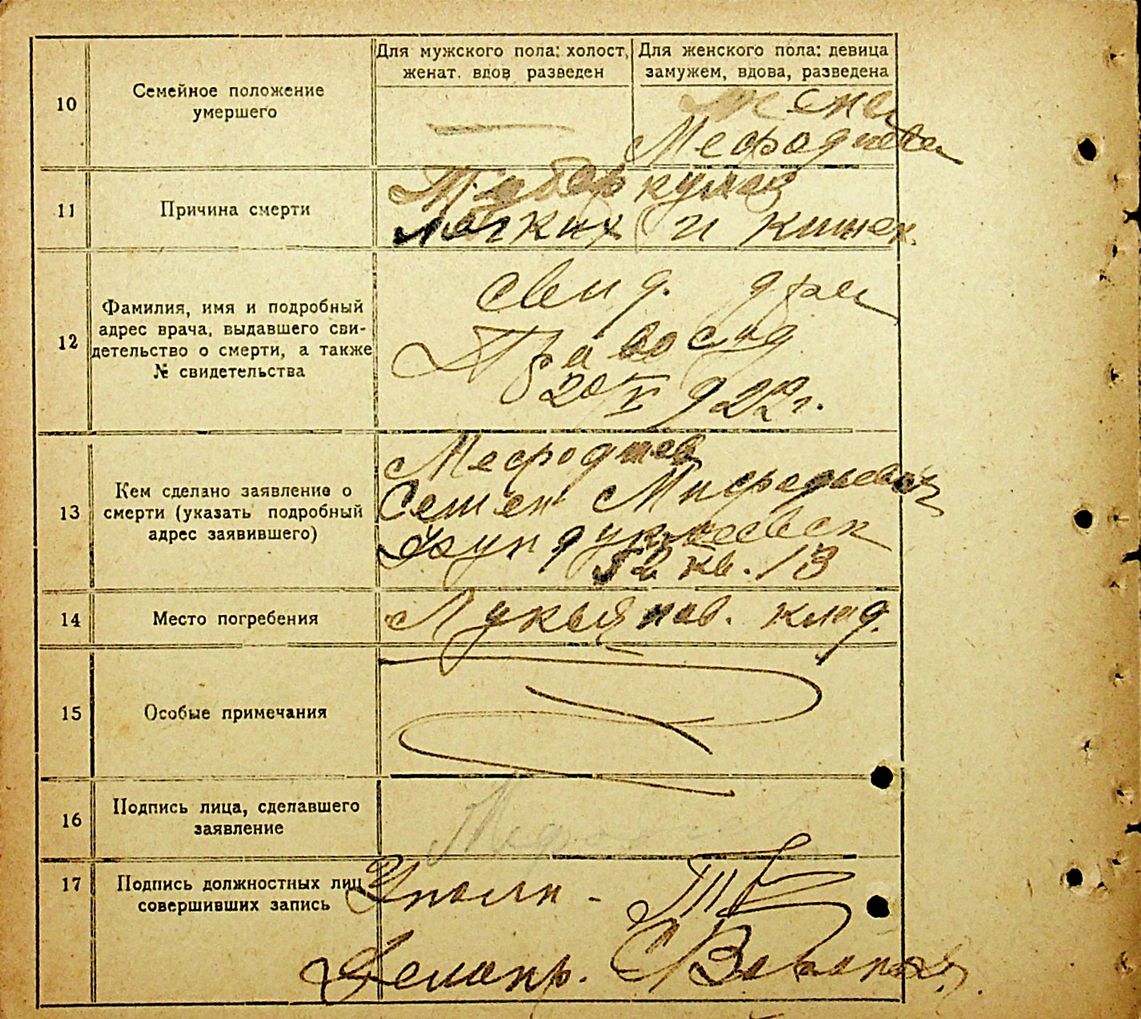 Для мужского пола: холост,
женат. вдов разведен
Для женского пола: девица
замужем, вдова, разведена
10
Семейное положение
умершего
—
жена
Мефодиева
11
Причина смерти
Туберкулез
легких и кишек.
12
Фамилия, имя и подробный
адрес врача, выдавшего сви-
детельство о смерти, а также
№ свидетельства
свид. д-ра
20/V 922 г.
13
Кем сделано заявление о
смерти (указать подробный
адрес заявившего)
Мефодиев
Семен Мифодьевич
Фундуклеевск
52 кв. 13
14
Место погребения
Лукьянов. клад.
15
Особые примечания
16
Подпись лица, сделавшего
заявление
17
Подпись должностных лиц
совершивших запись
Уполн -
Делопр.